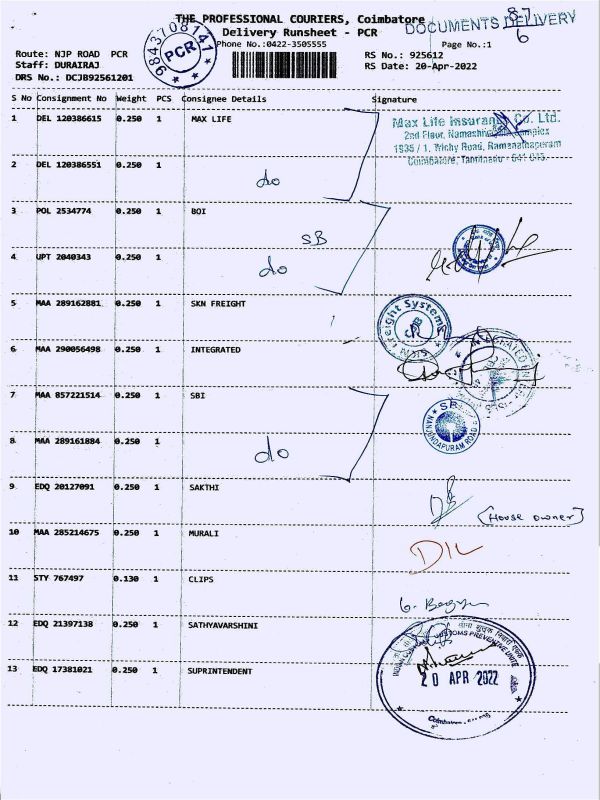 THE PROFESSIONAL COURIERS, Coimbatore
DOCUMENTS DELIVERY
Delivery Runsheet - PCR
Phone No.:0422-3505555
Page No.:1
9843708141
PCR
Route: NJP ROAD PCR
RS No.: 925612
Staff: DURAIRAJ
RS Date: 20-Apr-2022
DRS No.: DCJB92561201
S No Consignment No Weight PCS Consignee Details Signature
1 DEL 120386615 0.250 1 MAX LIFE
Max Life Insurance Co. Ltd.
2nd Floor, Complex
1935 / 1, Trichy Road, Ramanathapuram
Coimbatore, Tamilnadu - 641 045.
2 DEL 120386551 0.250 1
do
3 POL 2534774 0.250 1 BOI
SB
4 UPT 2040343 0.250 1
do
5 MAA 289162881 0.250 1 SKN FREIGHT
Freight Systems
6 MAA 290056498 0.250 1 INTEGRATED
7 MAA 857221514 0.250 1 SBI
NANJUNDAPURAM ROAD
8 MAA 289161884 0.250 1
do
9 EDQ 20127091 0.250 1 SAKTHI
[House owner]
10 MAA 285214675 0.250 1 MURALI
DIL
11 STY 767497 0.130 1 CLIPS
12 EDQ 21397138 0.250 1 SATHYAVARSHINI
13 EDQ 17381021 0.250 1 SUPRINTENDENT
CUSTOMS PREVENTIVE
20 APR 2022
Coimbatore